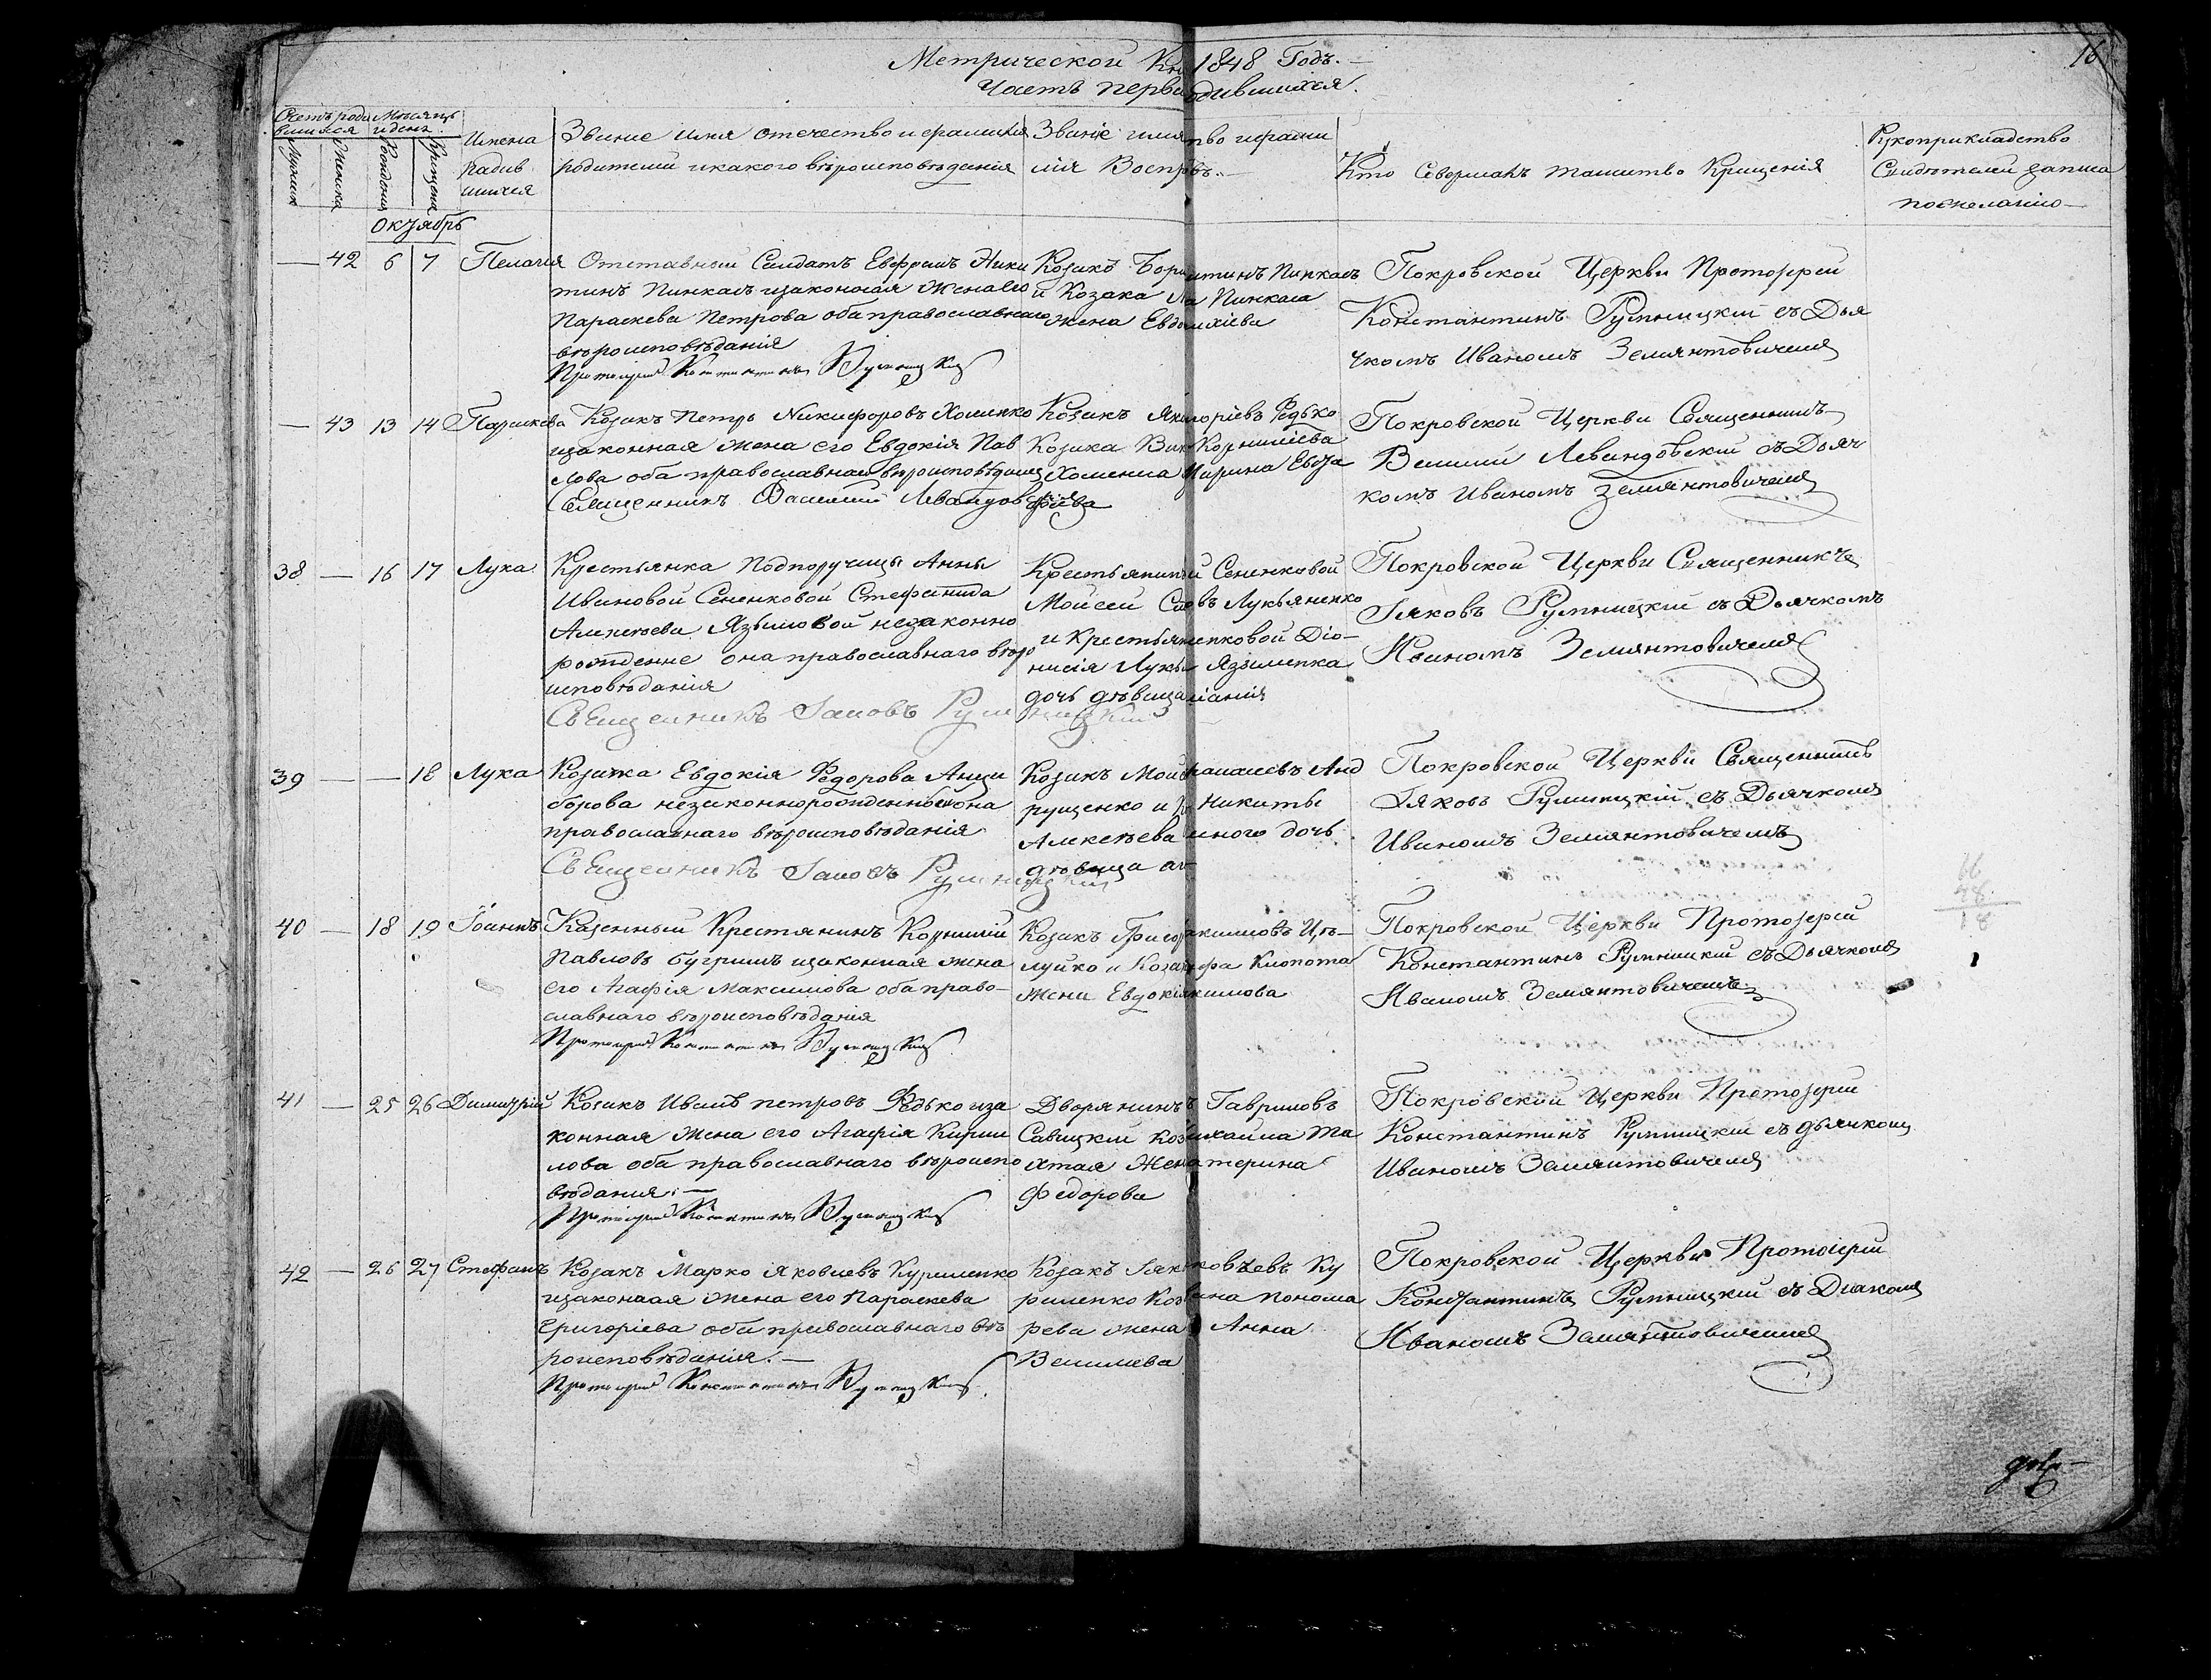 Метрической Кни 1848 Годъ.—
Часть перва одившихся.
16
Счетъ роди
вшихся
Мѣсяцъ
и день
Мужеск
Женска
Рождения
Крищения
Имена
Радив
шихся
Звание имя отечество и фамилия
родителей и какого вѣроисповѣдания
Звание имя тво и фами
лия Воспр въ.—
Кто Совершалъ таинство Крищенія
Рукоприкладство
Свидѣтелей записа
по желанію
октябрь
— 42 6 7 Пелагия
Отставный Салдатъ Евфремъ Ники
тинъ Пинкасъ изаконная жена его
Параскева Петрова оба православнаго
вѣроисповѣдания
Протоіерей Константинъ Румницкий
Козакъ Бори тинъ Пинкасъ
и Козака Пинкаса
жена Евдо кіева
Покровской Церкви Протоіерей
Константинъ Румницкій съ Дья
чкомъ Иваномъ Земянтовичемъ
— 43 13 14 Параскева
Козакъ Петръ Никифоровъ Хоменко
изаконная жена его Евдокія Пав
лова оба православнаго вѣроисповѣдания
Священникъ Василий Левандовский
Козакъ Як горіевъ Федько
Козака Вик Корниліева
Хоменка Марина Евста
фіева
Покровской Церкви Священникъ
Василий Левандовскій съ Дьяч
комъ Иваномъ Земянтовичемъ
38 — 16 17 Лука
Крестьянка Подпоручицы Анны
Ивановой Сененковой Стефанида
Алексѣева Язымовой незаконно
рожденне она православнаго вѣро
исповѣдания
Священникъ Іаковъ Румницкій
Крестьянин Сененковой
Моисей Са въ Лукьяненко
и Крестьян ненковой Діо—
нисія Лукь Языменка
дочь дѣвица ланія
Покровской Церкви Священникъ
Іяковъ Румницкій съ Дьячкомъ
Иваномъ Земянтовичемъ
39 — — 18 Лука
Козачка Евдокія Федорова Анци
борова незаконнорожденной она
православнаго вѣроисповѣдания
Священникъ Іаковъ Румницкій
Козакъ Мои анасиевъ Анд
рущенко и Никиты
Алексѣева нного дочь
дѣвица
Покровской Церкви Священникъ
Іяковъ Румницкій съ Дьячкомъ
Иваномъ Земянтовичемъ
40 — 18 19 Іоаннъ
Казенный Крестянинъ Корнилий
Павловъ Бугримъ изаконная жена
его Агафія Максимова оба право—
славнаго вѣроисповѣдания
Протоіерей Константинъ Румницкий
Козакъ Григо акимовъ Цѣ—
луйко и Коза фа Клопота
жена Евдокія кимова
Покровской Церкви Протоіерей
Константинъ Румницкій съ Дьячкомъ
Иваномъ Земянтовичемъ
41 — 25 26 Димитрій
Козакъ Иванъ Петровъ Федько иза
конная жена его Агафія Кирил
лова оба православнаго вѣроиспо
вѣдания.—
Протоіерей Константинъ Румницкий
Дворянинъ Гавриловъ
Савицкий Коз ихайла Та
хтая Жена терина
Федорова
Покровской Церкви Протоіерей
Константинъ Румницкій съ дьячкомъ
Иваномъ Земянтовичемъ
42 — 26 27 Стефанъ
Козакъ Марко Яковлевъ Куриленко
изаконная жена его Параскева
Григоріева оба православнаго вѣ
роисповѣдания.—
Протоіерей Константинъ Румницкий
Козакъ Іяк ковлевъ Ку
риленко Коз вана Понома
рева жена Анна
Василиева
Покровской Церкви Протоіерей
Константинъ Румницкій съ Діакомъ
Иваномъ Земянтовичемъ